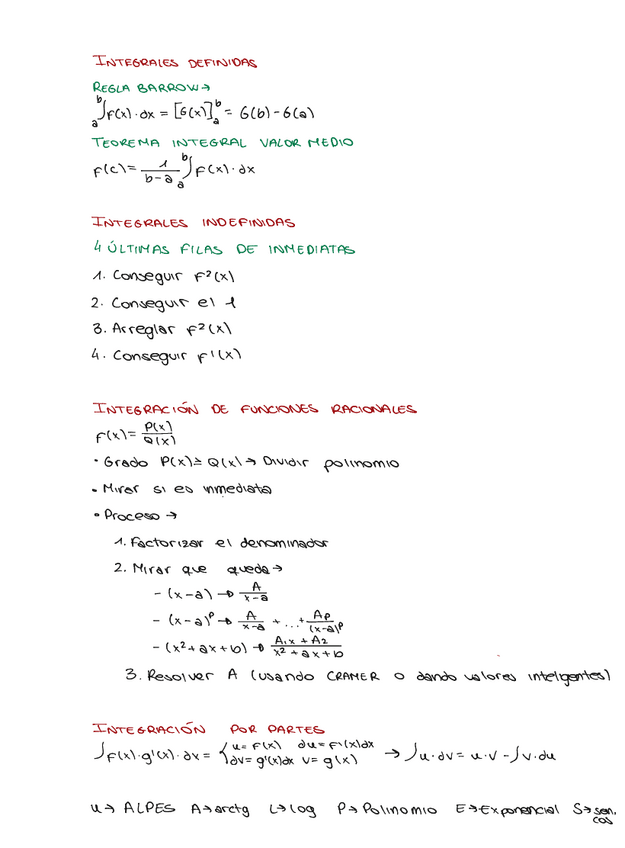 INTEGRALES DEFINIDAS
REGLA BARROW →
∫ₐᵇ F(x)·dx = [G(x)]ₐᵇ = G(b) - G(a)
TEOREMA INTEGRAL VALOR MEDIO
F(c) = 1/(b-a) ∫ₐᵇ F(x)·dx
INTEGRALES INDEFINIDAS
4 ÚLTIMAS FILAS DE INMEDIATAS
1. Conseguir F²(x)
2. Conseguir el 1
3. Arreglar F²(x)
4. Conseguir F'(x)
INTEGRACIÓN DE FUNCIONES RACIONALES
F(x) = P(x)/Q(x)
· Grado P(x) ≥ Q(x) → Dividir polinomio
· Mirar si es inmediata
· Proceso →
1. Factorizar el denominador
2. Mirar que queda →
- (x-a) → A/(x-a)
- (x-a)ᵖ → A/(x-a) + ... + Aₚ/(x-a)ᵖ
- (x²+ax+b) → (A₁x + A₂)/(x²+ax+b)
3. Resolver A (usando CRAMER o dando valores inteligentes)
INTEGRACIÓN POR PARTES
∫F(x)·g'(x)·dx = { u = F(x) du = F'(x)dx
dv = g'(x)dx v = g(x) → ∫u·dv = u·v - ∫v·du
u → ALPES A → arctg L → log P → Polinomio E → Exponencial S → sen, cos